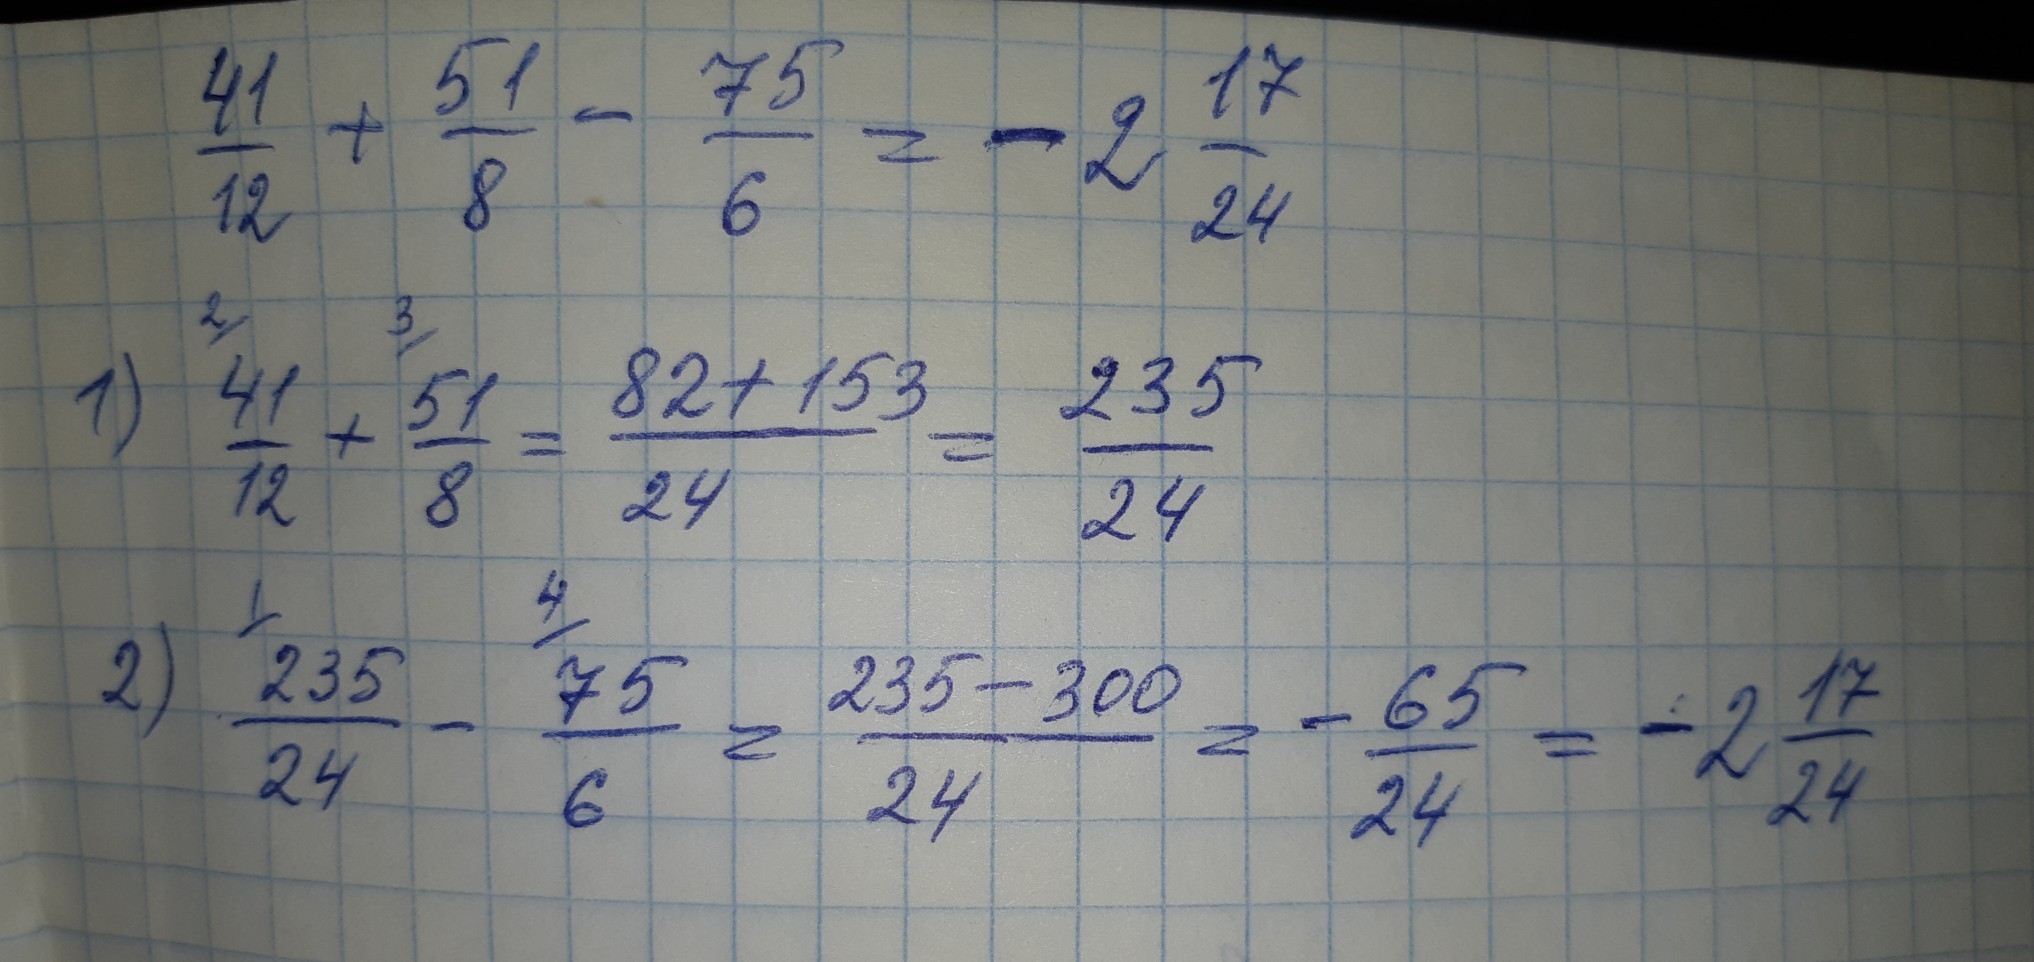 41/12 + 51/8 - 75/6 = - 2 17/24
2/ 3/
1) 41/12 + 51/8 = 82+153/24 = 235/24
1/ 4/
2) 235/24 - 75/6 = 235-300/24 = - 65/24 = - 2 17/24